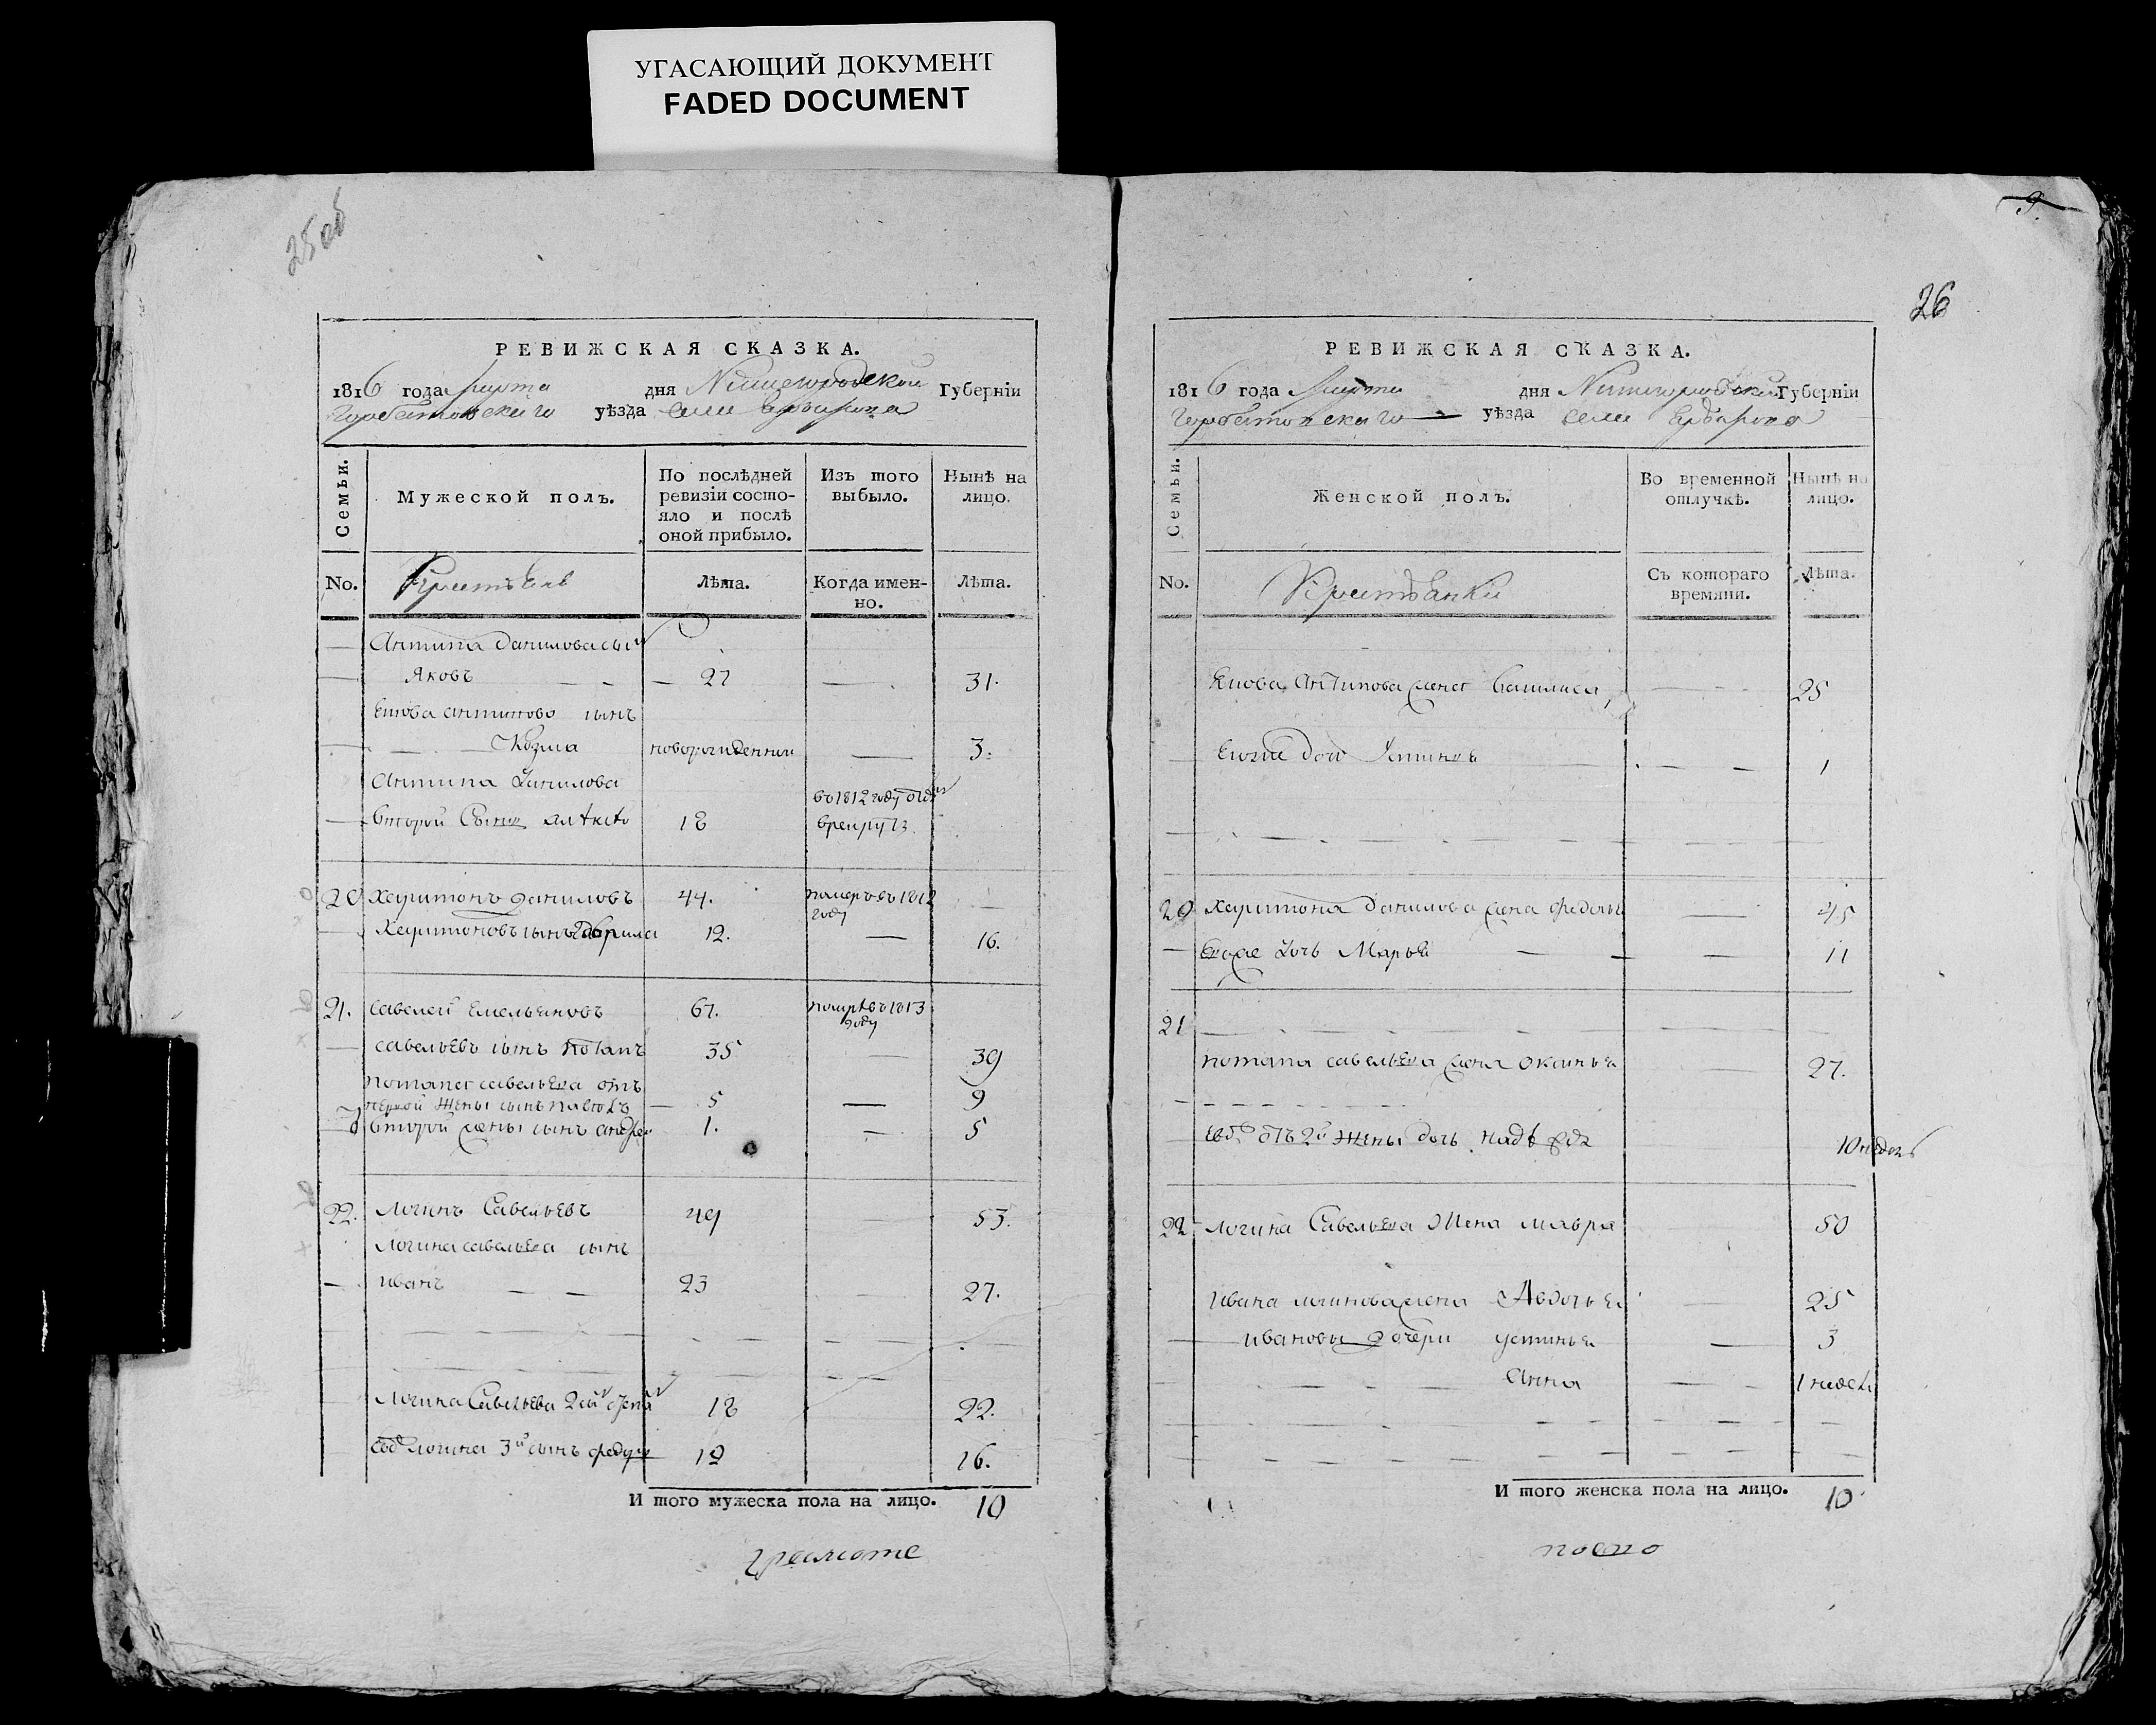 УГАСАЮЩИЙ ДОКУМЕНТ
FADED DOCUMENT
25об
РЕВИЖСКАЯ СКАЗКА.
1816 года марта дня Нижегородской Губерніи
Горбатовскаго уѣзда села
Семьи.
Мужеской полъ.
По послѣдней ревизіи состо-
яло и послѣ оной прибыло.
Изъ того выбыло.
Нынѣ на лицо.
No. Крестьяне Лѣта. Когда имен-
но. Лѣта.
Антипа данилова сынъ
Яковъ 27 31.
Якова антипова сынъ
Козма новорожденной 3.
Антипа данилова
второй Сынъ 18 въ 1812 году отданъ
врекруты
20 харитонъ даниловъ 44. померъ въ 1812
году
Харитоновъ сынъ гаврила 12. 16.
21. савелей емельяновъ 67. помре въ 1813
году
савельевъ сынъ Потапъ 35 39
потапа савельева отъ
первой жены сынъ 5 9
второй жены сынъ андрей 1. 5
22. логинъ Савельевъ 49 53.
логина савельева сынъ
иванъ 23 27.
Логина Савельева 2й сынъ 18 22.
Ево логина 3й сынъ 12 16.
И того мужеска пола на лицо. 10
грамоте
9.
26
РЕВИЖСКАЯ СКАЗКА.
1816 года марта дня Нижегородской Губерніи
Горбатовскаго уѣзда села
Семьи.
Женской полъ.
Во временной отлучкѣ.
Нынѣ на лицо.
No. Крестьянки Съ котораго
времяни. Лѣта.
Якова Антипова жена Василиса 25
Ево дочь 1
20 харитона данилова жена федосья 45
дочь Марья 11
21
потапа савельева жена 27.
Ево отъ 2й жены дочь 10 недель
22 логина Савельева жена мавра 50
ивана логинова жена Авдотья 25
ивановы дочери устинья 3
анна 1 недели
И того женска пола на лицо. 10